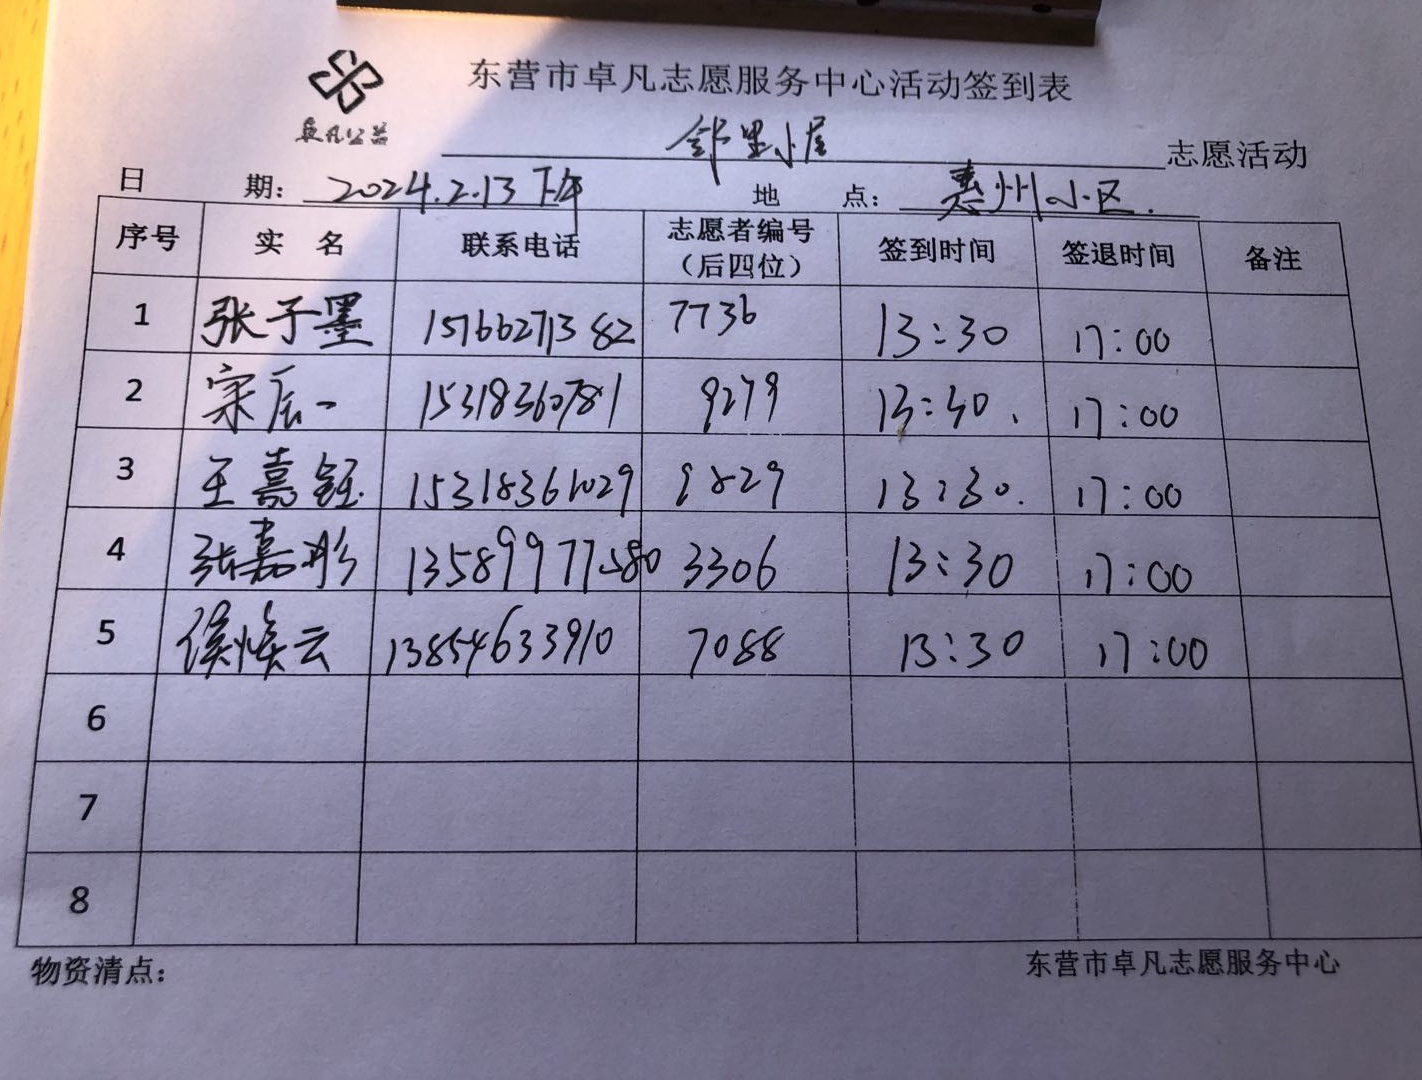 东营市卓凡志愿服务中心活动签到表
卓凡公益
邻里小屋 志愿活动
日 期： 2024.2.13 下午 地 点： 惠州小区.
序号 实 名 联系电话 志愿者编号（后四位） 签到时间 签退时间 备注
1 张子墨 15766271382 7736 13:30 17:00
2 宋辰一 15318360781 9279 13:30. 17:00
3 王嘉钰 15318361029 9829 13:30. 17:00
4 张嘉彤 13589977580 3306 13:30 17:00
5 侯焕云 13854633910 7088 13:30 17:00
6
7
8
物资清点： 东营市卓凡志愿服务中心